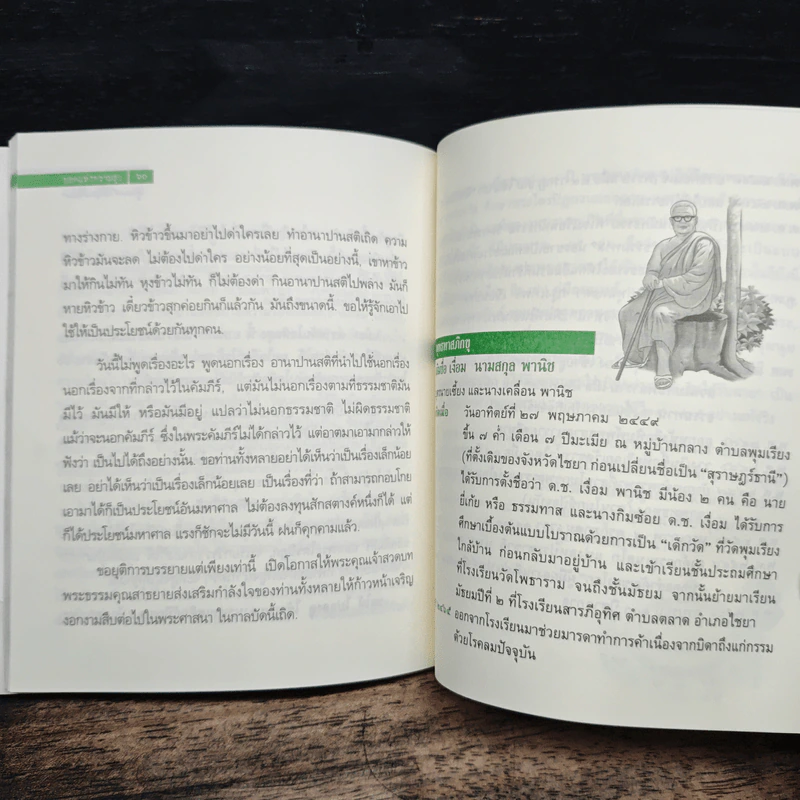 ๖๐
ทางร่างกาย. หิวข้าวขึ้นมาอย่าไปด่าใครเลย ทำอานาปานสติเถิด ความ
หิวข้าวมันจะลด ไม่ต้องไปด่าใคร อย่างน้อยที่สุดเป็นอย่างนี้, เขาหาข้าว
มาให้กินไม่ทัน หุงข้าวไม่ทัน ก็ไม่ต้องด่า กินอานาปานสติไปพลาง มันก็
หายหิวข้าว เดี๋ยวข้าวสุกค่อยกินก็แล้วกัน มันถึงขนาดนี้. ขอให้รู้จักเอาไป
ใช้ให้เป็นประโยชน์ด้วยกันทุกคน.
วันนี้ไม่พูดเรื่องอะไร พูดนอกเรื่อง อานาปานสติที่นำไปใช้นอกเรื่อง
นอกเรื่องจากที่กล่าวไว้ในคัมภีร์, แต่มันไม่นอกเรื่องตามที่ธรรมชาติมัน
มีไว้ มันมีให้ หรือมันมีอยู่ แปลว่าไม่นอกธรรมชาติ ไม่ผิดธรรมชาติ
แม้ว่าจะนอกคัมภีร์, ซึ่งในพระคัมภีร์ไม่ได้กล่าวไว้ แต่อาตมาเอามากล่าวให้
ฟังว่า เป็นไปได้ถึงอย่างนั้น. ขอท่านทั้งหลายอย่าได้เห็นว่าเป็นเรื่องเล็กน้อย
เลย อย่าได้เห็นว่าเป็นเรื่องเล็กน้อยเลย เป็นเรื่องที่ว่า ถ้าสามารถกอบโกย
เอามาได้ก็เป็นประโยชน์อันมหาศาล ไม่ต้องลงทุนสักสตางค์หนึ่งก็ได้ แต่
ก็ได้ประโยชน์มหาศาล แรงก็ชักจะไม่มีวันนี้ ฝนก็คุกคามแล้ว.
ขอยุติการบรรยายแต่เพียงเท่านี้ เปิดโอกาสให้พระคุณเจ้าสวดบท
พระธรรมคุณสาธยายส่งเสริมกำลังใจของท่านทั้งหลายให้ก้าวหน้าเจริญ
งอกงามสืบต่อไปในพระศาสนา ในกาลบัดนี้เถิด.
พุทธทาสภิกขุ
เงื่อม นามสกุล พานิช
นายเซี้ยง และนางเคลื่อน พานิช
วันอาทิตย์ที่ ๒๗ พฤษภาคม ๒๔๔๙
ขึ้น ๗ ค่ำ เดือน ๗ ปีมะเมีย ณ หมู่บ้านกลาง ตำบลพุมเรียง
(ที่ตั้งเดิมของจังหวัดไชยา ก่อนเปลี่ยนชื่อเป็น “สุราษฎร์ธานี”)
ได้รับการตั้งชื่อว่า ด.ช. เงื่อม พานิช มีน้อง ๒ คน คือ นาย
ยี่เก้ย หรือ ธรรมทาส และนางกิมซ้อย ด.ช. เงื่อม ได้รับการ
ศึกษาเบื้องต้นแบบโบราณด้วยการเป็น “เด็กวัด” ที่วัดพุมเรียง
ใกล้บ้าน ก่อนกลับมาอยู่บ้าน และเข้าเรียนชั้นประถมศึกษา
ที่โรงเรียนวัดโพธาราม จนถึงชั้นมัธยม จากนั้นย้ายมาเรียน
มัธยมปีที่ ๒ ที่โรงเรียนสารภีอุทิศ ตำบลตลาด อำเภอไชยา
ออกจากโรงเรียนมาช่วยมารดาทำการค้าเนื่องจากบิดาถึงแก่กรรม
ด้วยโรคลมปัจจุบัน